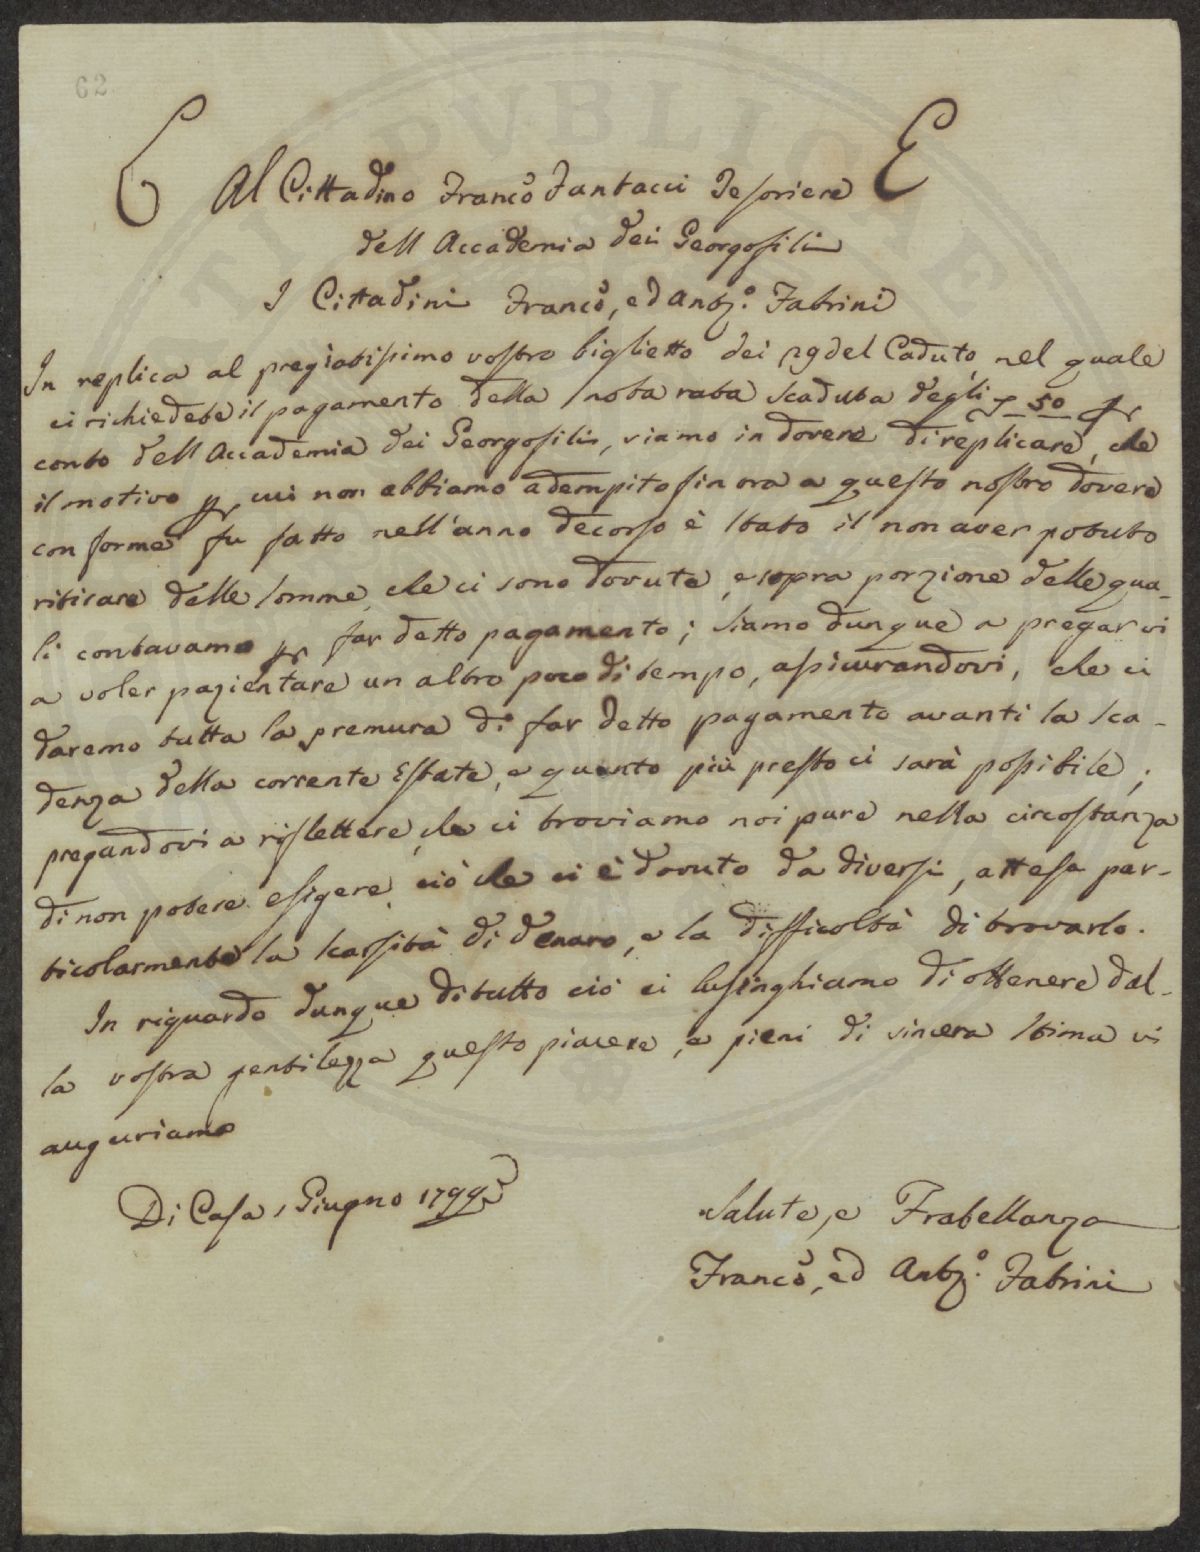 62
L E
Al Cittadino Franco Fantacci Tesoriere
dell Accademia dei Georgofili
I Cittadini Franco, ed Anto. Fabrini
In replica al pregiatissimo vostro biglietto dei 29 del Caduto, nel quale
ci richiedete il pagamento della nota rata scaduta degli 50 pr
conto dell Accademia dei Georgofili, siamo in dovere di replicare, che
il motivo pr cui non abbiamo adempito sin ora a questo nostro dovere
conforme fu fatto nell'anno decorso è stato il non aver potuto
ritirare delle somme, che ci sono dovute, e sopra porzione delle qua-
li contavamo pr far detto pagamento; siamo dunque a pregarvi
a voler pazientare un altro poco di tempo, assicurandovi, che ci
daremo tutta la premura di far detto pagamento avanti la sca-
denza della corrente Estate, e quanto più presto ci sarà possibile;
pregandovi a riflettere, che ci troviamo noi pure nella circostanza
di non potere esigere ciò che ci è dovuto da diversi, attesa par-
ticolarmente la scarsità di denaro, e la difficoltà di trovarlo.
In riguardo dunque di tutto ciò ci lusinghiamo di ottenere dal-
la vostra gentilezza questo piacere, e pieni di sincera stima vi
auguriamo
Di Casa 1 Giugno 1799
Salute, e Fratellanza
Franco, ed Anto. Fabrini